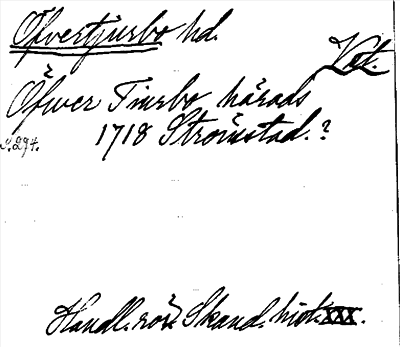 Öfvertjurbo hd.
Vst.
Öfwer Tiurbo härads
1718 Strömstad.?
s. 294.
Handl. rör. Skand. hist. XXX.